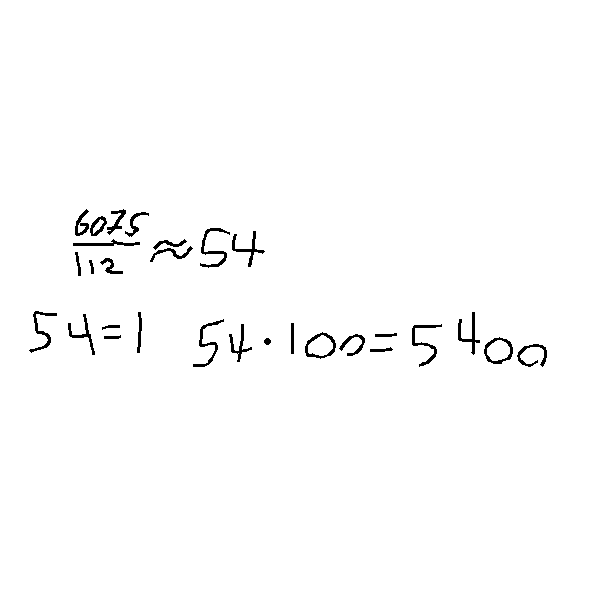 6075
112 ≈ 54
54 = 1 54 · 100 = 5400